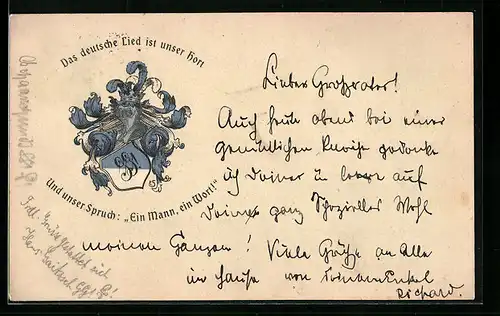 Das deutsche Lied ist unser Hort
Und unser Spruch: „Ein Mann, ein Wort!"
Lieber Großvater!
Auch heute abend bei einer
gemütlichen Kneipe gedenke
ich Deiner u. leere auf
Deines ganz Spezielles Wohl
meinen Ganzen! Viele Grüße an Alle
im Hause von Deinem Enkel
Richard.